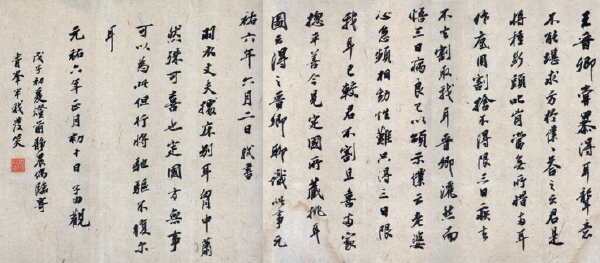 王晉卿嘗暴得耳聾意
不能堪求方於僕僕答之云君是
將種斷頭穴胷當無所惜兩耳
作底用割捨不得限三日疾去
不去割取我耳晉卿灑然而
悟三日病良已以頌示僕云老婆
心急頻相勸性難只得三日限
我耳已較君不割且喜兩家
揔平善今見定國所藏挑耳
圖云得之晉卿聊識此事元
祐六年六月二日軾書
羽衣丈夫據床剔耳胷中蕭
然殊可喜也定國方無事
可以為此但行將馳驅不復尔
耳
元祐六年正月初十日子由觀
戊子初夏靜晨偶臨寄
青峯發笑